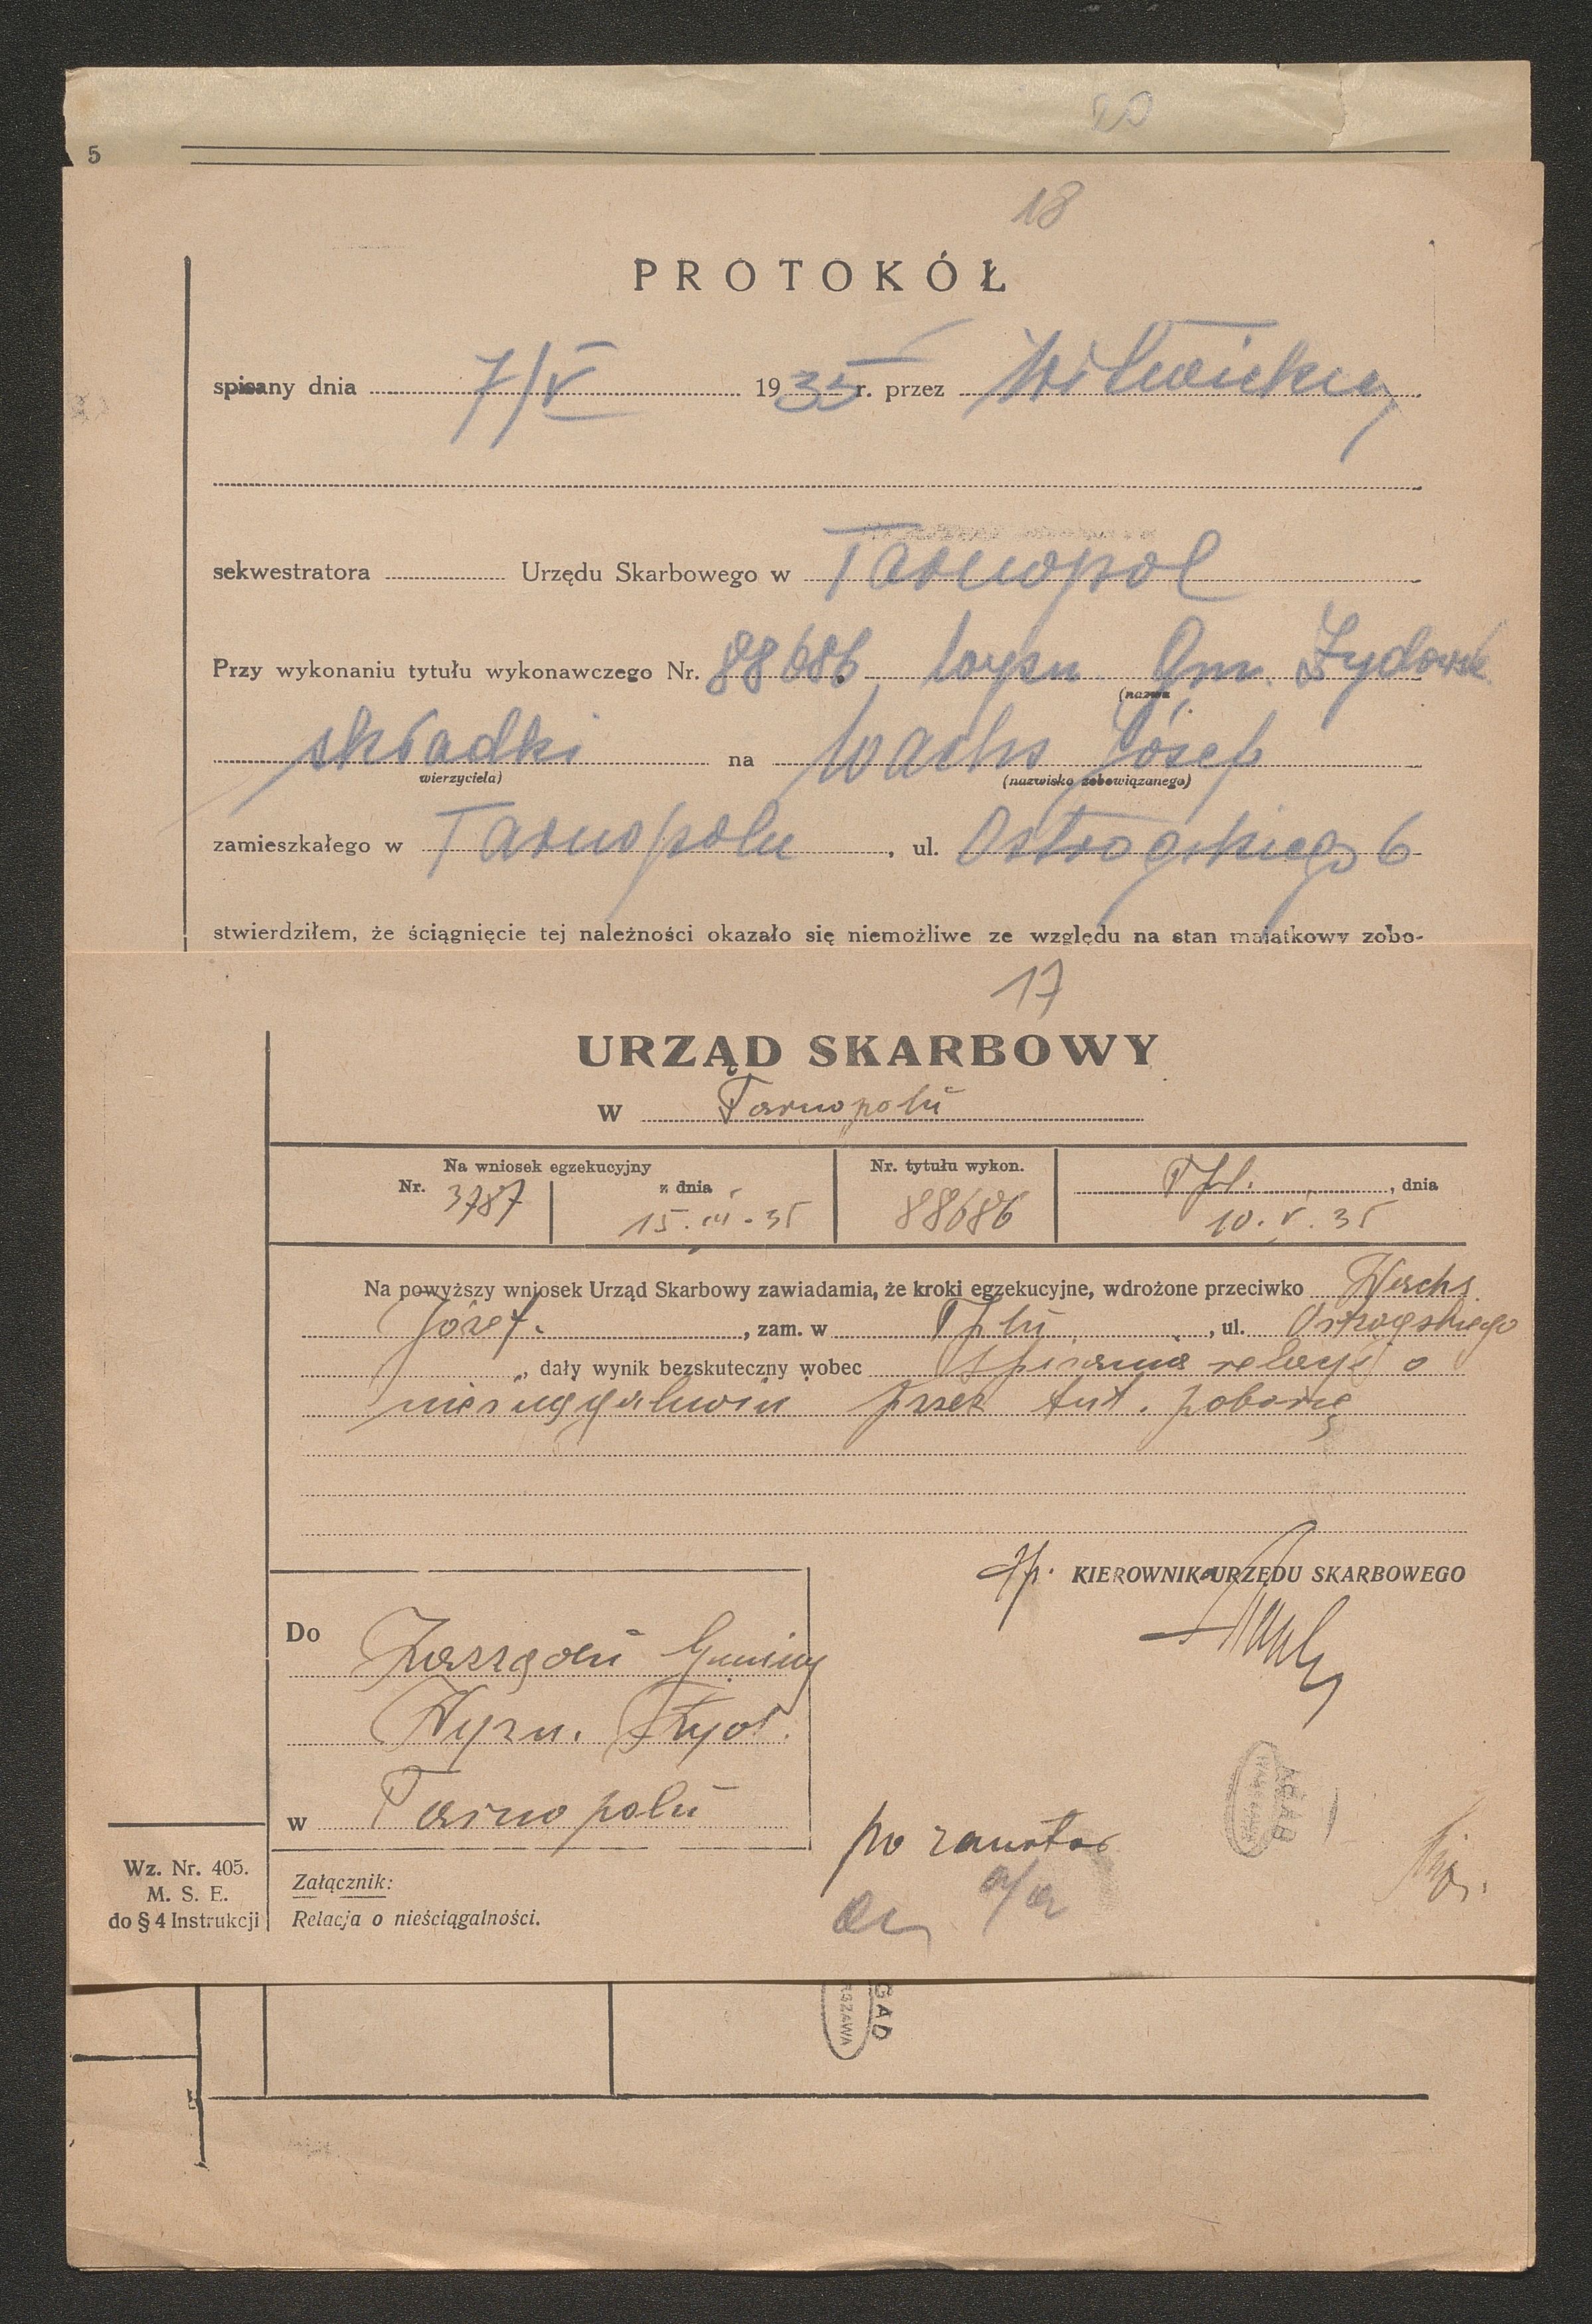 20
5
18
PROTOKÓŁ
spisany dnia 7/V 1935 r. przez Witwicki
sekwestratora Urzędu Skarbowego w Tarnopol
Przy wykonaniu tytułu wykonawczego Nr. 88686 wyzn. Gm. Żydowsk.
(nazwa
składki na Wachs Józef
wierzyciela) (nazwisko zobowiązanego)
zamieszkałego w Tarnopolu, ul. Ostrogskiego 6
stwierdziłem, że ściągnięcie tej należności okazało się niemożliwe ze względu na stan majątkowy zobo-
17
URZĄD SKARBOWY
w Tarnopolu
Na wniosek egzekucyjny Nr. tytułu wykon. Tpl., dnia
Nr. 3787 z dnia 15.III.35 88686 10.V.35
Na powyższy wniosek Urząd Skarbowy zawiadamia, że kroki egzekucyjne, wdrożone przeciwko Wachs
Józef., zam. w Tplu, ul. Ostrogskiego
, dały wynik bezskuteczny wobec spisania relacji o
nieściągalności przez tut. poborcę
KIEROWNIK URZĘDU SKARBOWEGO
Do Zarządu Gminy
Wyzn. Żyd.
w Tarnopolu
po
a/a
Wz. Nr. 405.
M. S. E.
do § 4 Instrukcji
Załącznik:
Relacja o nieściągalności.
AGAD
GAD
RSZAWA